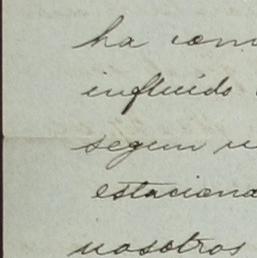 ha com
influido
segun u
estaciona
nosotros